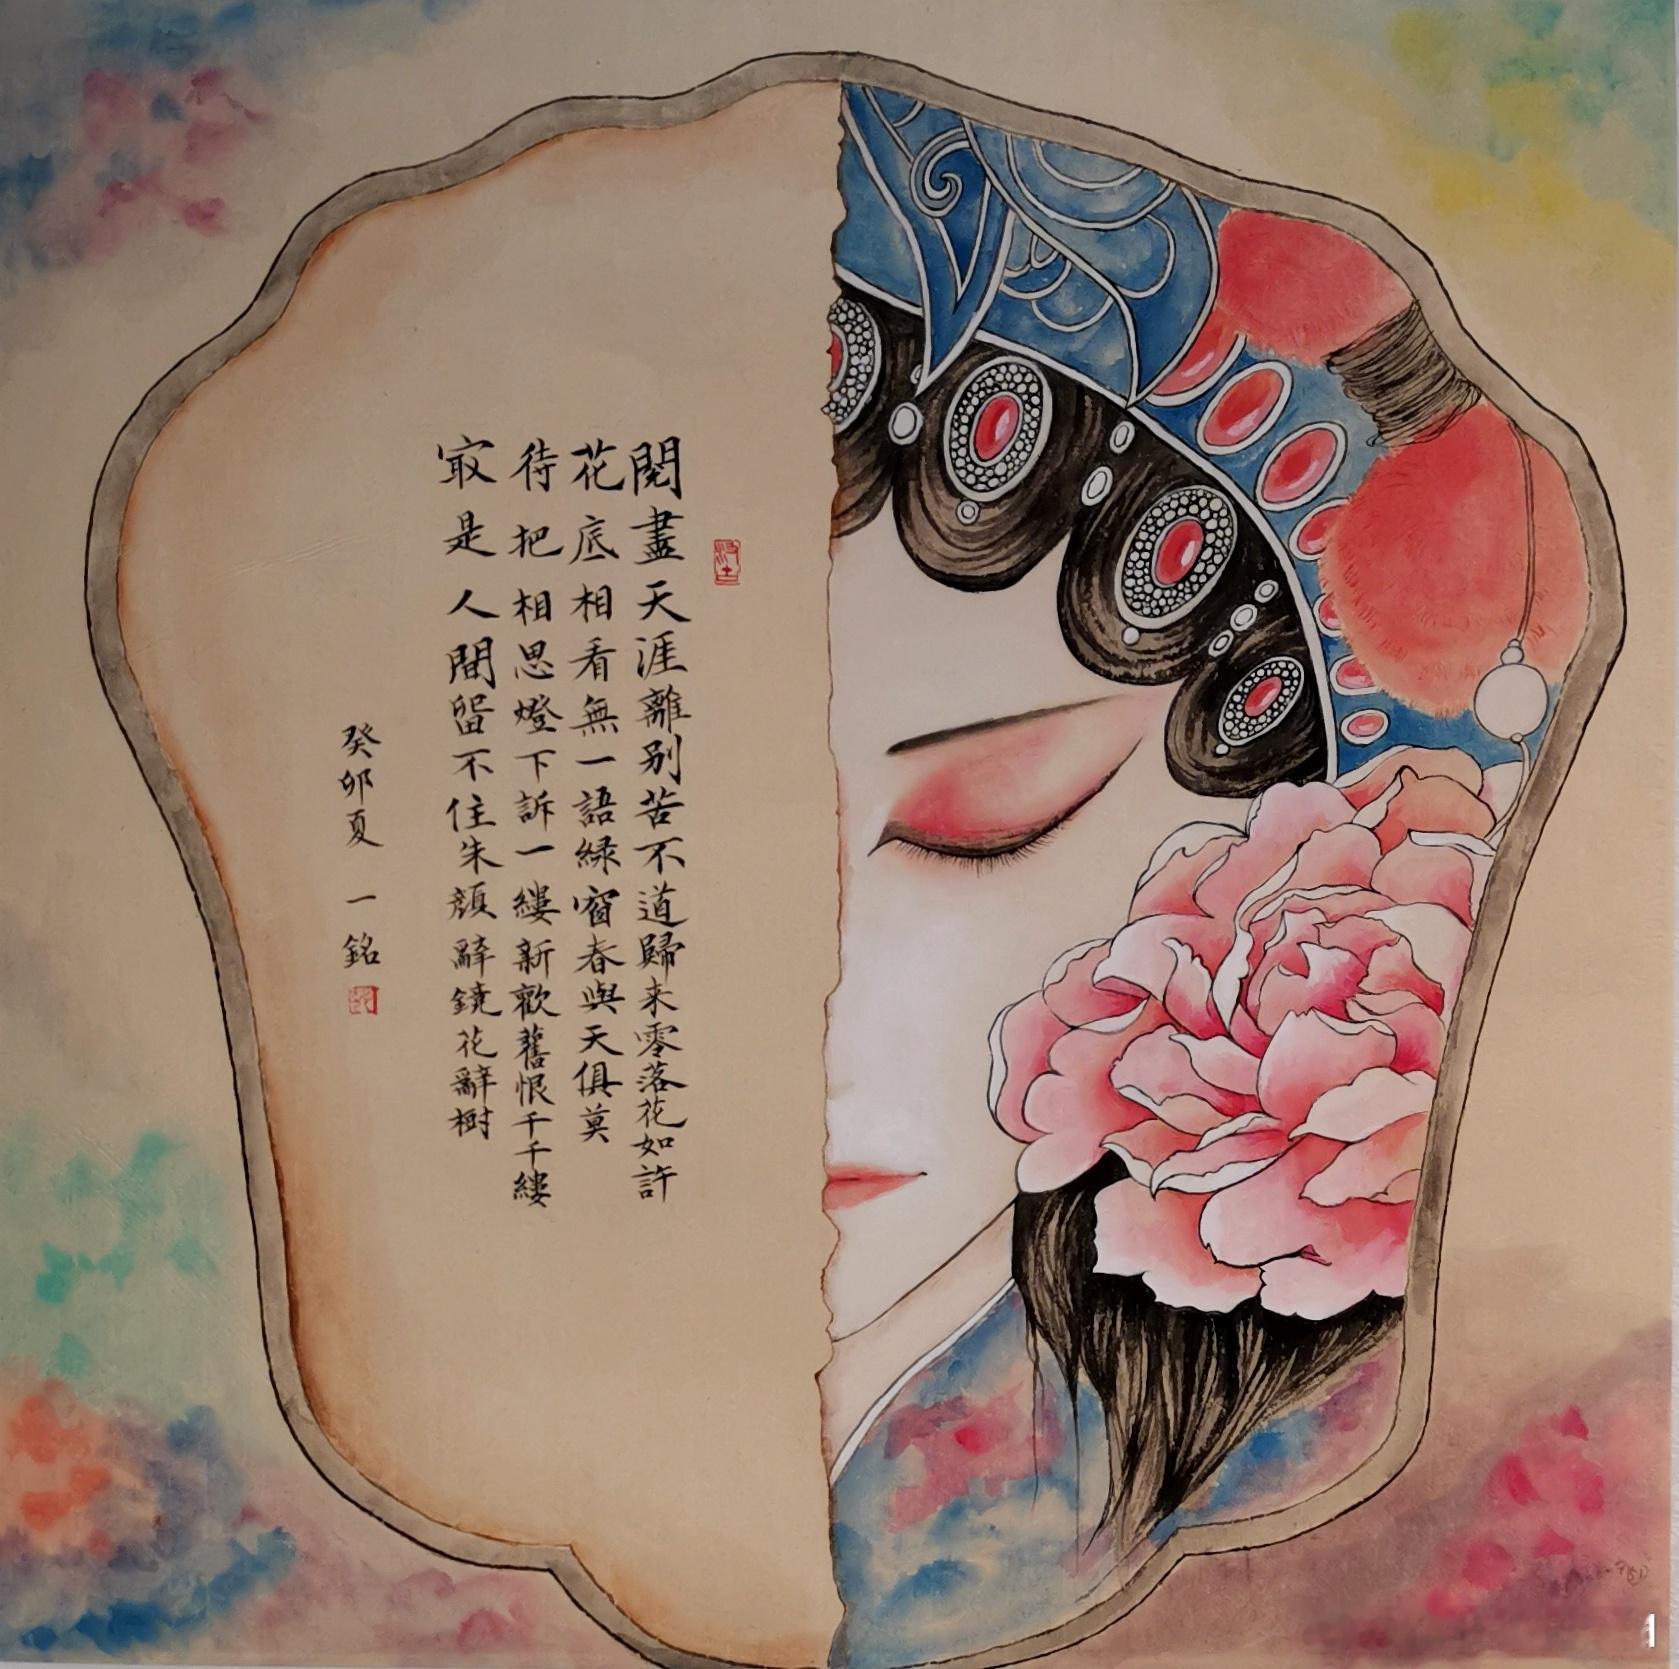 閲盡天涯離别苦不道歸来零落花如許
花底相看無一語緑窗春與天俱莫
待把相思燈下訴一縷新歡舊恨千千縷
㝡是人間留不住朱顔辭鏡花辭樹
癸卯夏 一銘
1